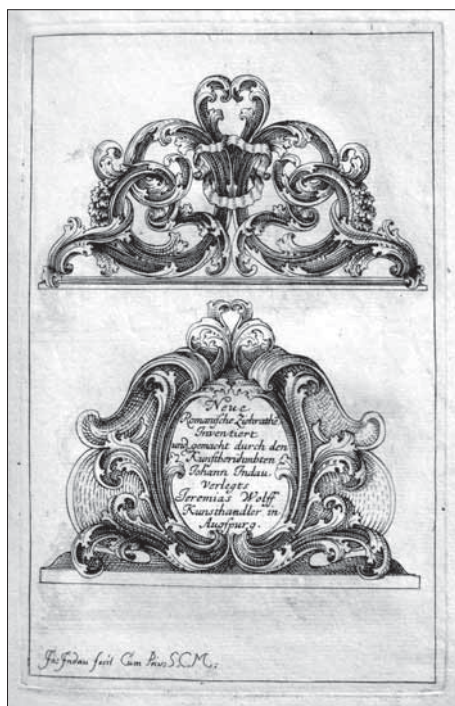 Neue
Romanische Ziehrathe
Inventiert
und gemacht durch den
Kunstberühmbten H:
Johann Indau.
Verlegts
Jeremias Wolff
Kunsthandler, in
Augspurg.
Jo: Indau fecit Cum Priv: S. C. M.